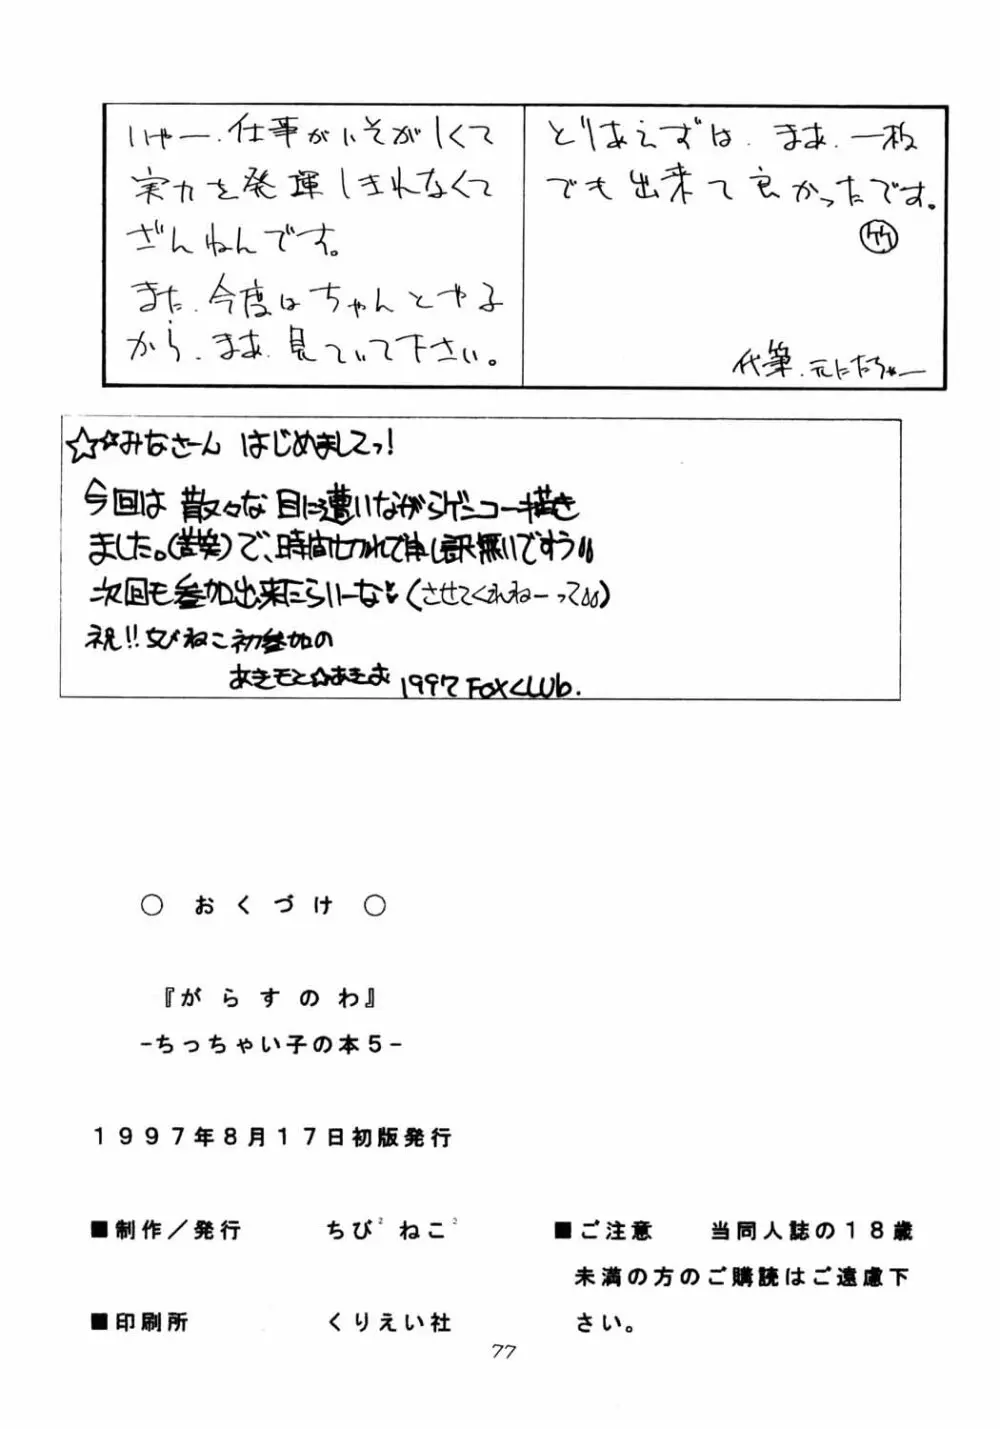 いやー、仕事がいそがしくて
実力を発揮しきれなくて
ざんねんです。
また、今度はちゃんとやる
から、まあ、見ていて下さい。
とりあえずは、まあ、一枚
でも出来て良かったです。
竹
代筆、元にたちゃー
☆☆みなさーん はじめましてっ!
今回は 散々な 目に遭いながらゲンコー描き
ました。(苦笑)で、時間切れで申し訳無いですぅ
次回も参加出来たらいーな♥(させてくれねーって)
祝!!ちびねこ初参加の
あきもと☆あきお 1997 FOXCLUb.
○ おくづけ ○
『がらすのわ』
-ちっちゃい子の本5-
1997年8月17日初版発行
■制作／発行 ちび²ねこ²
■印刷所 くりえい社
■ご注意 当同人誌の18歳
未満の方のご購読はご遠慮下
さい。
77